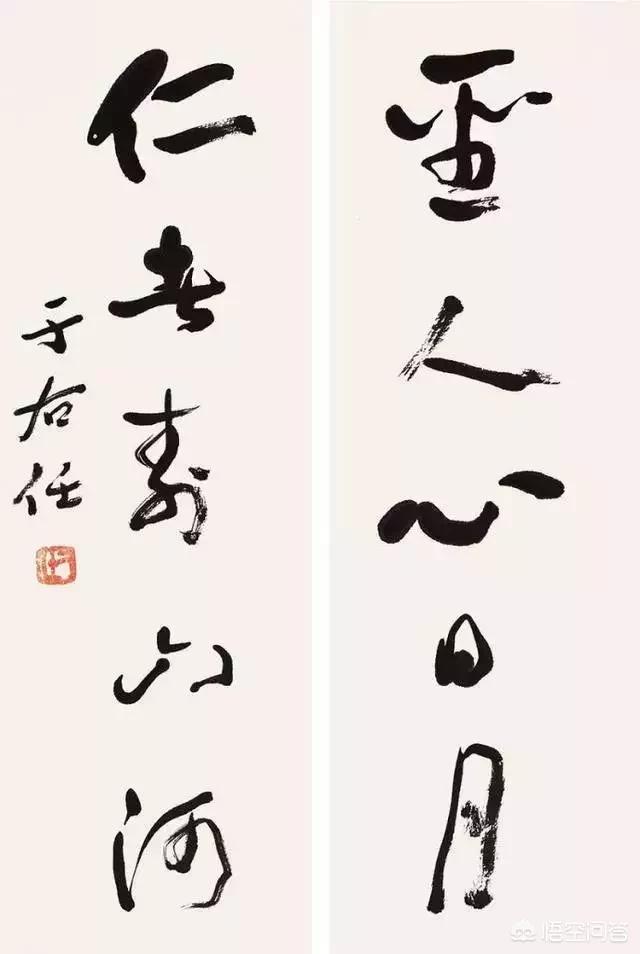 聖人心日月
仁者壽山河
于右任
悟空问答